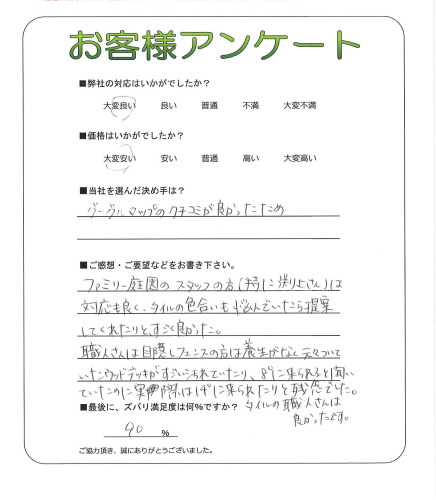 お客様アンケート
■弊社の対応はいかがでしたか？
大変良い 良い 普通 不満 大変不満
■価格はいかがでしたか？
大変安い 安い 普通 高い 大変高い
■当社を選んだ決め手は？
グーグルマップのクチコミが良かったため
■ご感想・ご要望などをお書き下さい。
ファミリー庭園のスタッフの方(特に渕上さん)は
対応も良く、タイルの色合いも悩んでいたら提案
してくれたりと、すごく良かった。
職人さんは目隠しフェンスの方は養生がなく元々ついて
いたウッドデッキがすごい られていたり、8°に来られると聞い
ていたのに実際は14°に来られたりと残念でした。
タイルの職人さんは
良かったです。
■最後に、ズバリ満足度は何％ですか？
90 %
ご協力頂き、誠にありがとうございました。